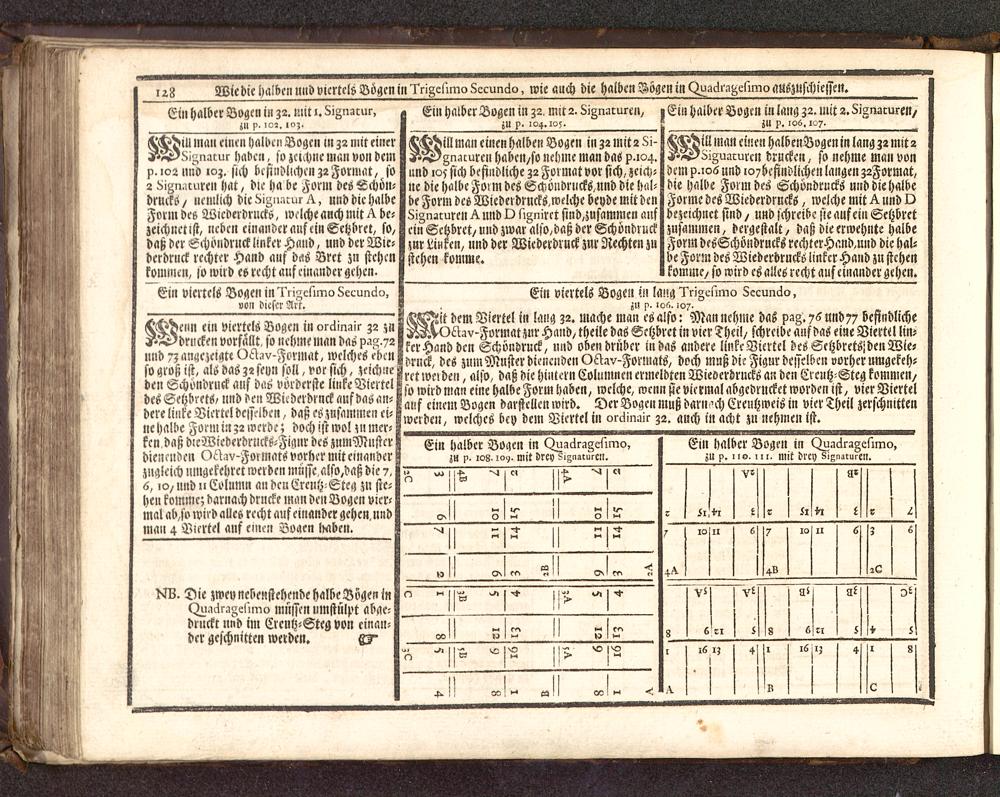 128 Wie die halben und viertels Bögen in Trigesimo Secundo, wie auch die halben Bögen in Quadragesimo auszuschiessen.
Ein halber Bogen in 32. mit 1. Signatur,
zu p. 102. 103.
Will man einen halben Bogen in 32 mit einer
Signatur haben, so zeichne man von dem
p. 102 und 103. sich befindlichen 32 Format, so
2 Signaturen hat, die halbe Form des Schön-
drucks, nemlich die Signatur A, und die halbe
Form des Wiederdrucks, welche auch mit A be-
zeichnet ist, neben einander auf ein Setzbret, so,
daß der Schöndruck linker Hand, und der Wie-
derdruck rechter Hand auf das Bret zu stehen
kommen, so wird es recht auf einander gehen.
Ein viertels Bogen in Trigesimo Secundo,
von dieser Art.
Wenn ein viertels Bogen in ordinair 32 zu
drucken vorfällt, so nehme man das pag. 72
und 73 angezeigte Octav-Format, welches eben
so groß ist, als das 32 seyn soll, vor sich, zeichne
den Schöndruck auf das vörderste linke Viertel
des Setzbrets, und den Wiederdruck auf das an-
dere linke Viertel desselben, daß es zusammen ei-
ne halbe Form in 32 werde; doch ist wol zu mer-
ken, daß die Wiederdrucks-Figur des zum Muster
dienenden Octav-Formats vorher mit einander
zugleich umgekehret werden müsse, also, daß die 7,
6, 10, und 11 Column an den Creutz-Steg zu ste-
hen komme; darnach drucke man den Bogen vier-
mal ab, so wird alles recht auf einander gehen, und
man 4 Viertel auf einen Bogen haben.
NB. Die zwey nebenstehende halbe Bögen in
Quadragesimo müssen umstülpt abge-
druckt und im Creutz-Steg von einan-
der geschnitten werden. ☞
Ein halber Bogen in 32. mit 2. Signaturen,
zu p. 104. 105.
Will man einen halben Bogen in 32 mit 2 Si-
gnaturen haben, so nehme man das p. 104.
und 105 sich befindliche 32 Format vor sich, zeich-
ne die halbe Form des Schöndrucks, und die hal-
be Form des Wiederdrucks, welche beyde mit den
Signaturen A und D signiret sind, zusammen auf
ein Setzbret, und zwar also, daß der Schöndruck
zur Linken, und der Wiederdruck zur Rechten zu
stehen komme.
Ein halber Bogen in lang 32. mit 2. Signaturen,
zu p. 106. 107.
Will man einen halben Bogen in lang 32 mit 2
Siguaturen drucken, so nehme man von
dem p. 106 und 107 befindlichen langen 32 Format,
die halbe Form des Schöndrucks und die halbe
Forme des Wiederdrucks, welche mit A und D
bezeichnet sind, und schreibe sie auf ein Setzbret
zusammen, dergestalt, daß die erwehnte halbe
Form des Schöndrucks rechter Hand, und die hal-
be Form des Wiederdrucks linker Hand zu stehen
komme, so wird es alles recht auf einander gehen.
Ein viertels Bogen in lang Trigesimo Secundo,
zu p. 106. 107.
Mit dem Viertel in lang 32. mache man es also: Man nehme das pag. 76 und 77 befindliche
Octav-Format zur Hand, theile das Setzbret in vier Theil, schreibe auf das eine Viertel lin-
ker Hand den Schöndruck, und oben drüber in das andere linke Viertel des Setzbrets, den Wie-
druck, des zum Muster dienenden Octav-Formats, doch muß die Figur desselben vorher umgekeh-
ret werden, also, daß die hintern Columnen ermeldten Wiederdrucks an den Creutz-Steg kommen,
so wird man eine halbe Form haben, welche, wenn sie viermal abgedrucket worden ist, vier Viertel
auf einem Bogen darstellen wird. Der Bogen muß darnach Creutzweis in vier Theil zerschnitten
werden, welches bey dem Viertel in ordinair 32. auch in acht zu nehmen ist.
Ein halber Bogen in Quadragesimo,
zu p. 108. 109. mit drey Signaturen.
2C 3 4B 7 2 4A 7 2
6 10 15 10 15
7 11 14 11 14
2 6 3 2B 6 3 2A
C 1 3B 5 4 3A 5 4
8 12 13 12 13
3C 5 5B 9 16 5A 9 16
4 8 1 B 8 1 A
Ein halber Bogen in Quadragesimo,
zu p. 110. 111. mit drey Signaturen.
2A 2B
2 15 14 3 2 15 14 3 2 7
7 10 11 6 7 10 11 6 3 6
4A 4B 2C
5A 3A 5B 3B 3C
8 9 12 5 8 9 12 5 4 5
1 16 13 4 1 16 13 4 1 8
A B C